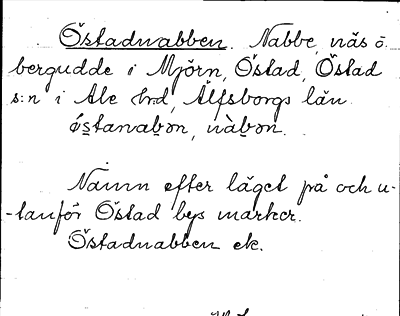 Östadnabben. Nabbe, näs o.
bergudde i Mjörn, Östad, Östad
s:n i Ale hrd, Älfsborgs län.
ǿstanabən, nàbən.
Namn efter läget på och u-
-tanför Östad bys marker.
Östadnabben ek.